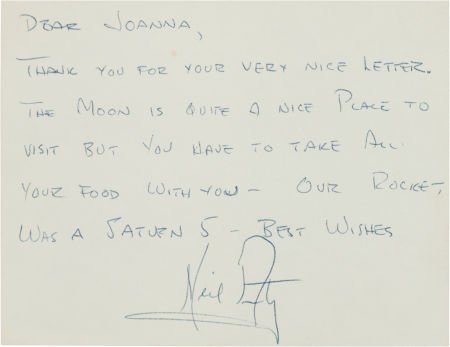 DEAR JOANNA,
THANK YOU FOR YOUR VERY NICE LETTER.
THE MOON IS QUITE A NICE PLACE TO
VISIT BUT YOU HAVE TO TAKE ALL
YOUR FOOD WITH YOU – OUR ROCKET,
WAS A SATURN 5 – BEST WISHES
Neil